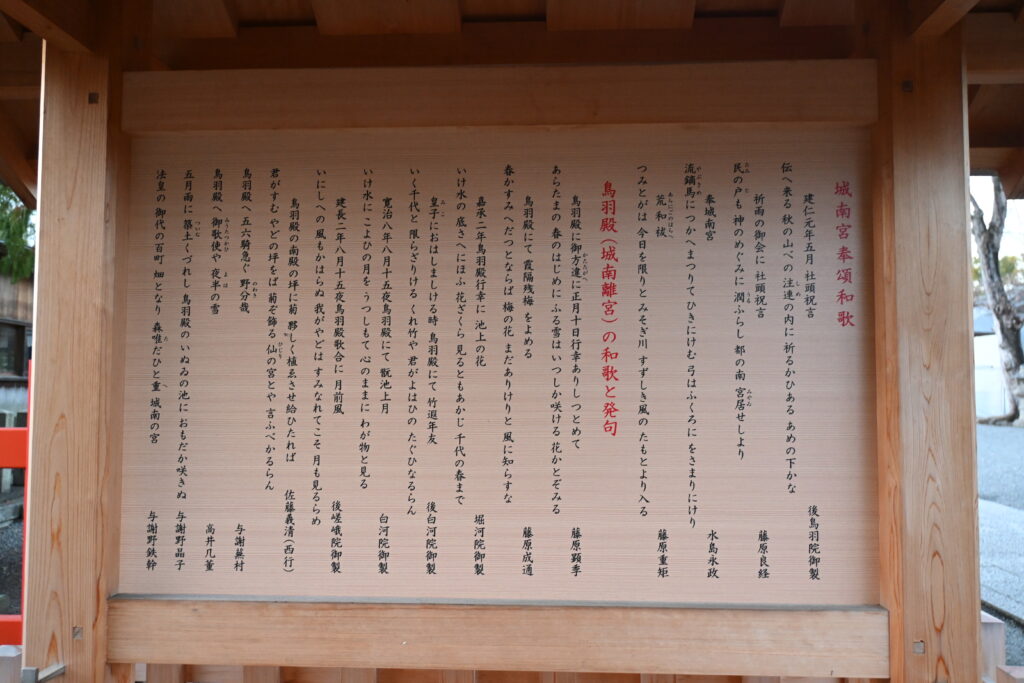 城南宮奉頌和歌
建仁元年五月 社頭祝言
後鳥羽院御製
伝へ来る 秋の山べの 注連の内に 祈るかひある あめの下かな
祈雨の御会に 社頭祝言
藤原良経
民の戸も 神のめぐみに 潤ふらし 都の南 宮居せしより
奉城南宮
水島永政
流鏑馬に つかへまつりて ひきにけむ 弓はふくろに をさまりにけり
荒和祓
藤原重矩
つみとがは 今日を限りと みそぎ川 すずしき風の たもとより入る
鳥羽殿(城南離宮)の和歌と発句
鳥羽殿に御方違に正月十日行幸ありしつとめて
藤原顕季
あらたまの 春のはじめに ふる雪は いつしか咲ける 花かとぞみる
鳥羽殿にて 霞隔残梅 をよめる
藤原成通
春がすみ へだつとならば 梅の花 まだありけりと 風に知らすな
嘉承二年鳥羽殿行幸に 池上の花
堀河院御製
いけ水の 底さへにほふ 花ざくら 見るともあかじ 千代の春まで
皇子におはしましける時 鳥羽殿にて 竹遐年友
後白河院御製
いく千代と 限らざりける くれ竹や 君がよはひの たぐひなるらん
寛治八年八月十五夜鳥羽殿にて 翫池上月
白河院御製
いけ水に こよひの月を うつしもて 心のままに わが物と見る
建長二年八月十五夜鳥羽殿歌合に 月前風
後嵯峨院御製
いにしへの 風もかはらぬ 我がやどは すみなれてこそ 月も見るらめ
鳥羽殿の南殿の坪に菊 夥しく植ゑさせ給ひたれば
佐藤義清(西行)
君がすむ やどの坪をば 菊ぞ飾る 仙の宮とや 言ふべかるらん
鳥羽殿へ 五六騎急ぐ 野分哉
与謝蕪村
鳥羽殿へ 御歌使や 夜半の雪
高井几董
五月雨に 築土くづれし 鳥羽殿の いぬゐの池に おもだか咲きぬ
与謝野晶子
法皇の 御代の百町 畑となり 森唯だひと重 城南の宮
与謝野鉄幹